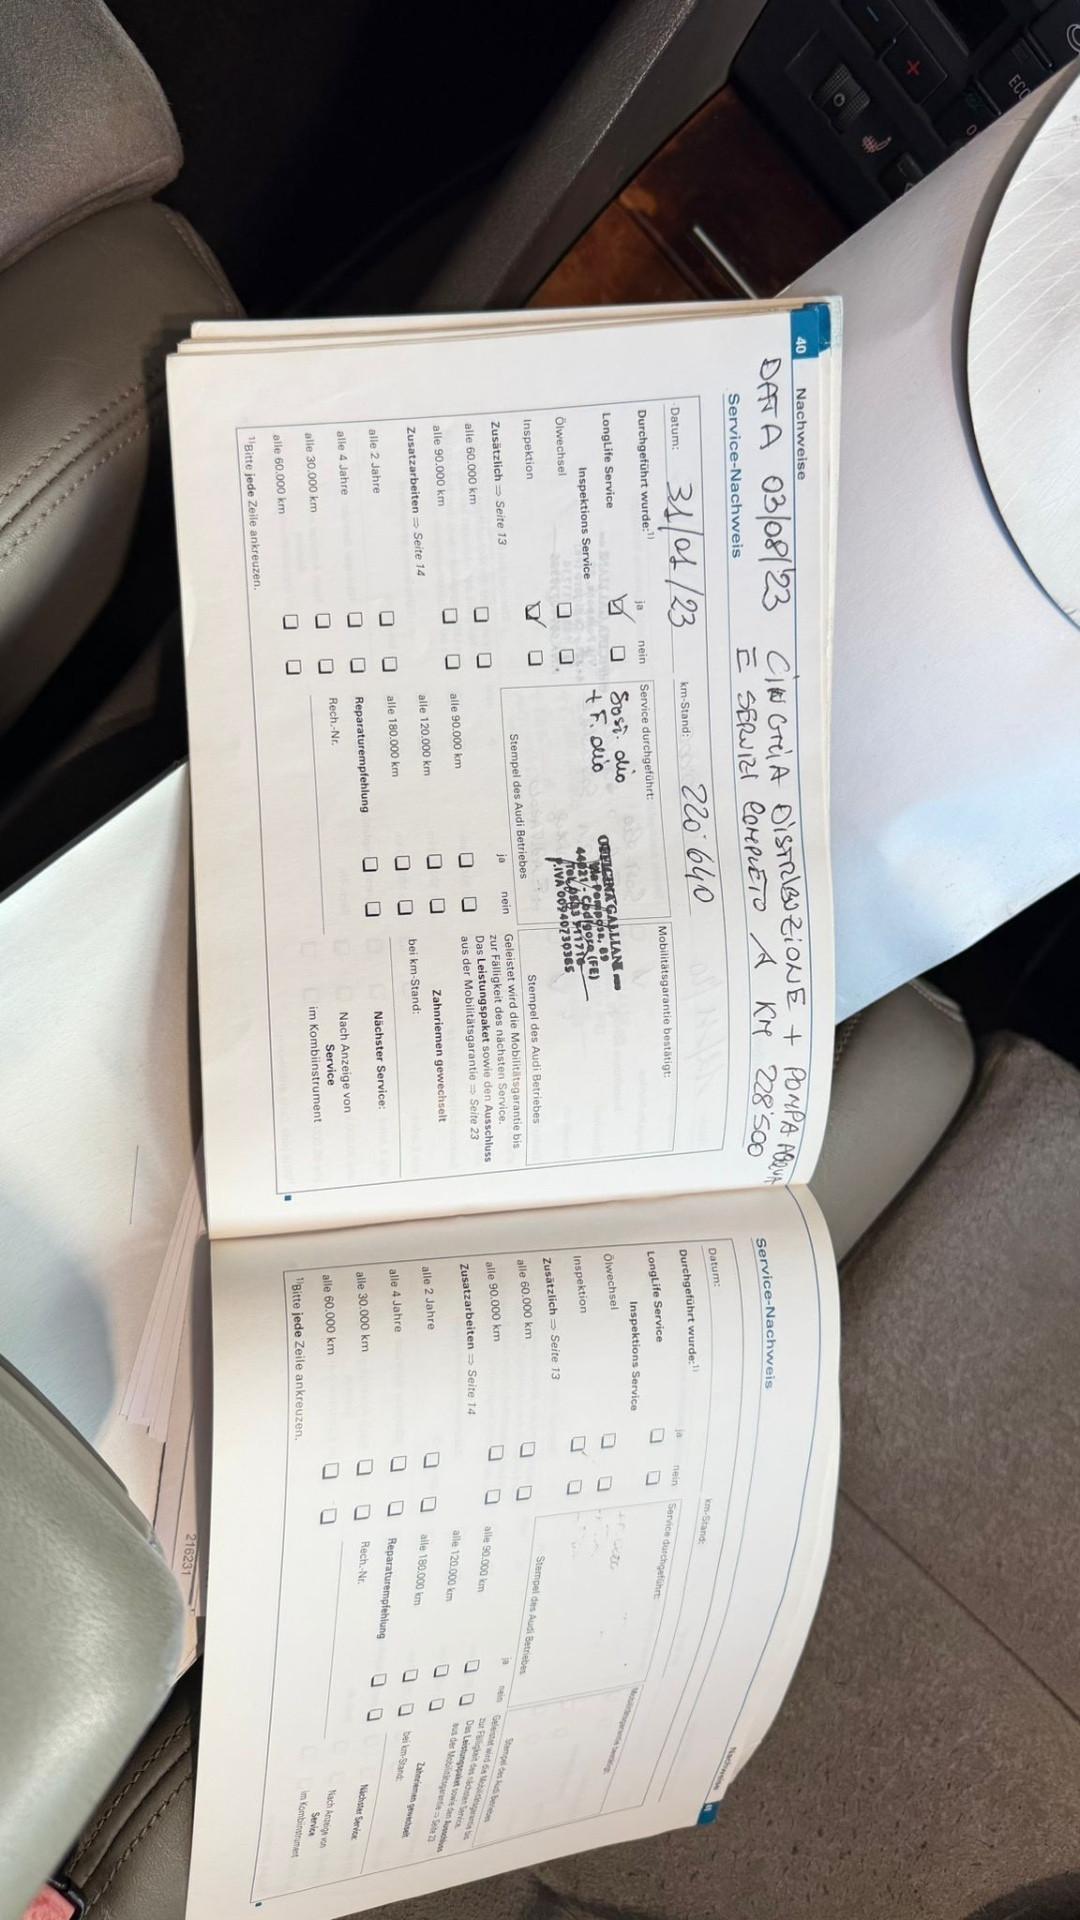 40 Nachweise
DATA 03/08/'23 CINGHIA DISTRIBUZIONE + POMPA ACQUA
E SERVIZI COMPLETO A KM 228'500
Service-Nachweis
Datum: 31/01/23 km-Stand: 220'640
Durchgeführt wurde:¹⁾ ja nein
Service durchgeführt:
Mobilitätsgarantie bestätigt:
LongLife Service
Inspektions Service
Ölwechsel
Inspektion
Sost. olio
+ F. olio
OFFICINA GALLIANI
Via Pomposa, 89
44021 - Codigoro (FE)
P.IVA 00940730385
Stempel des Audi Betriebes
Stempel des Audi Betriebes
Zusätzlich ⇒ Seite 13
alle 60.000 km
alle 90.000 km
Zusatzarbeiten ⇒ Seite 14
alle 2 Jahre
alle 4 Jahre
alle 30.000 km
alle 60.000 km
ja nein
alle 90.000 km
alle 120.000 km
alle 180.000 km
Reparaturempfehlung
Rech.-Nr.
Geleistet wird die Mobilitätsgarantie bis
zur Fälligkeit des nächsten Service.
Das Leistungspaket sowie den Ausschluss
aus der Mobilitätsgarantie ⇒ Seite 23
Zahnriemen gewechselt
bei km-Stand:
Nächster Service:
Nach Anzeige von
Service
im Kombiinstrument
¹⁾Bitte jede Zeile ankreuzen.
Nachweise
Service-Nachweis
Datum: km-Stand:
Durchgeführt wurde:¹⁾ ja nein
Service durchgeführt:
Mobilitätsgarantie bestätigt:
LongLife Service
Inspektions Service
Ölwechsel
Inspektion
Stempel des Audi Betriebes
Stempel des Audi Betriebes
Zusätzlich ⇒ Seite 13
alle 60.000 km
alle 90.000 km
Zusatzarbeiten ⇒ Seite 14
alle 2 Jahre
alle 4 Jahre
alle 30.000 km
alle 60.000 km
ja nein
alle 90.000 km
alle 120.000 km
alle 180.000 km
Reparaturempfehlung
Rech.-Nr.
Geleistet wird die Mobilitätsgarantie bis
zur Fälligkeit des nächsten Service.
Das Leistungspaket sowie den Ausschluss
aus der Mobilitätsgarantie ⇒ Seite 23
Zahnriemen gewechselt
bei km-Stand:
Nächster Service:
Nach Anzeige von
Service
im Kombiinstrument
¹⁾Bitte jede Zeile ankreuzen.
216231